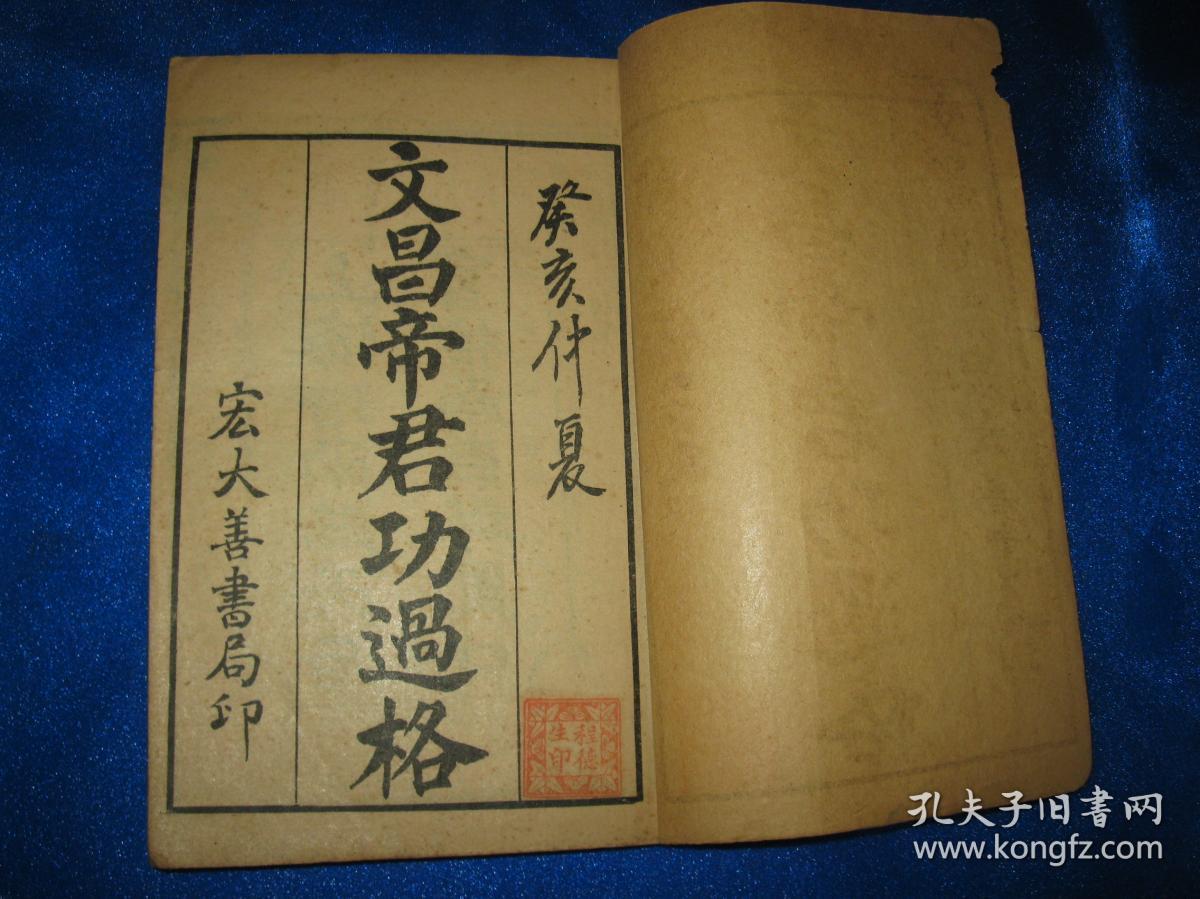 癸亥仲夏
文昌帝君功過格
宏大善書局印
程德
生印
孔夫子旧書网
www.kongfz.com